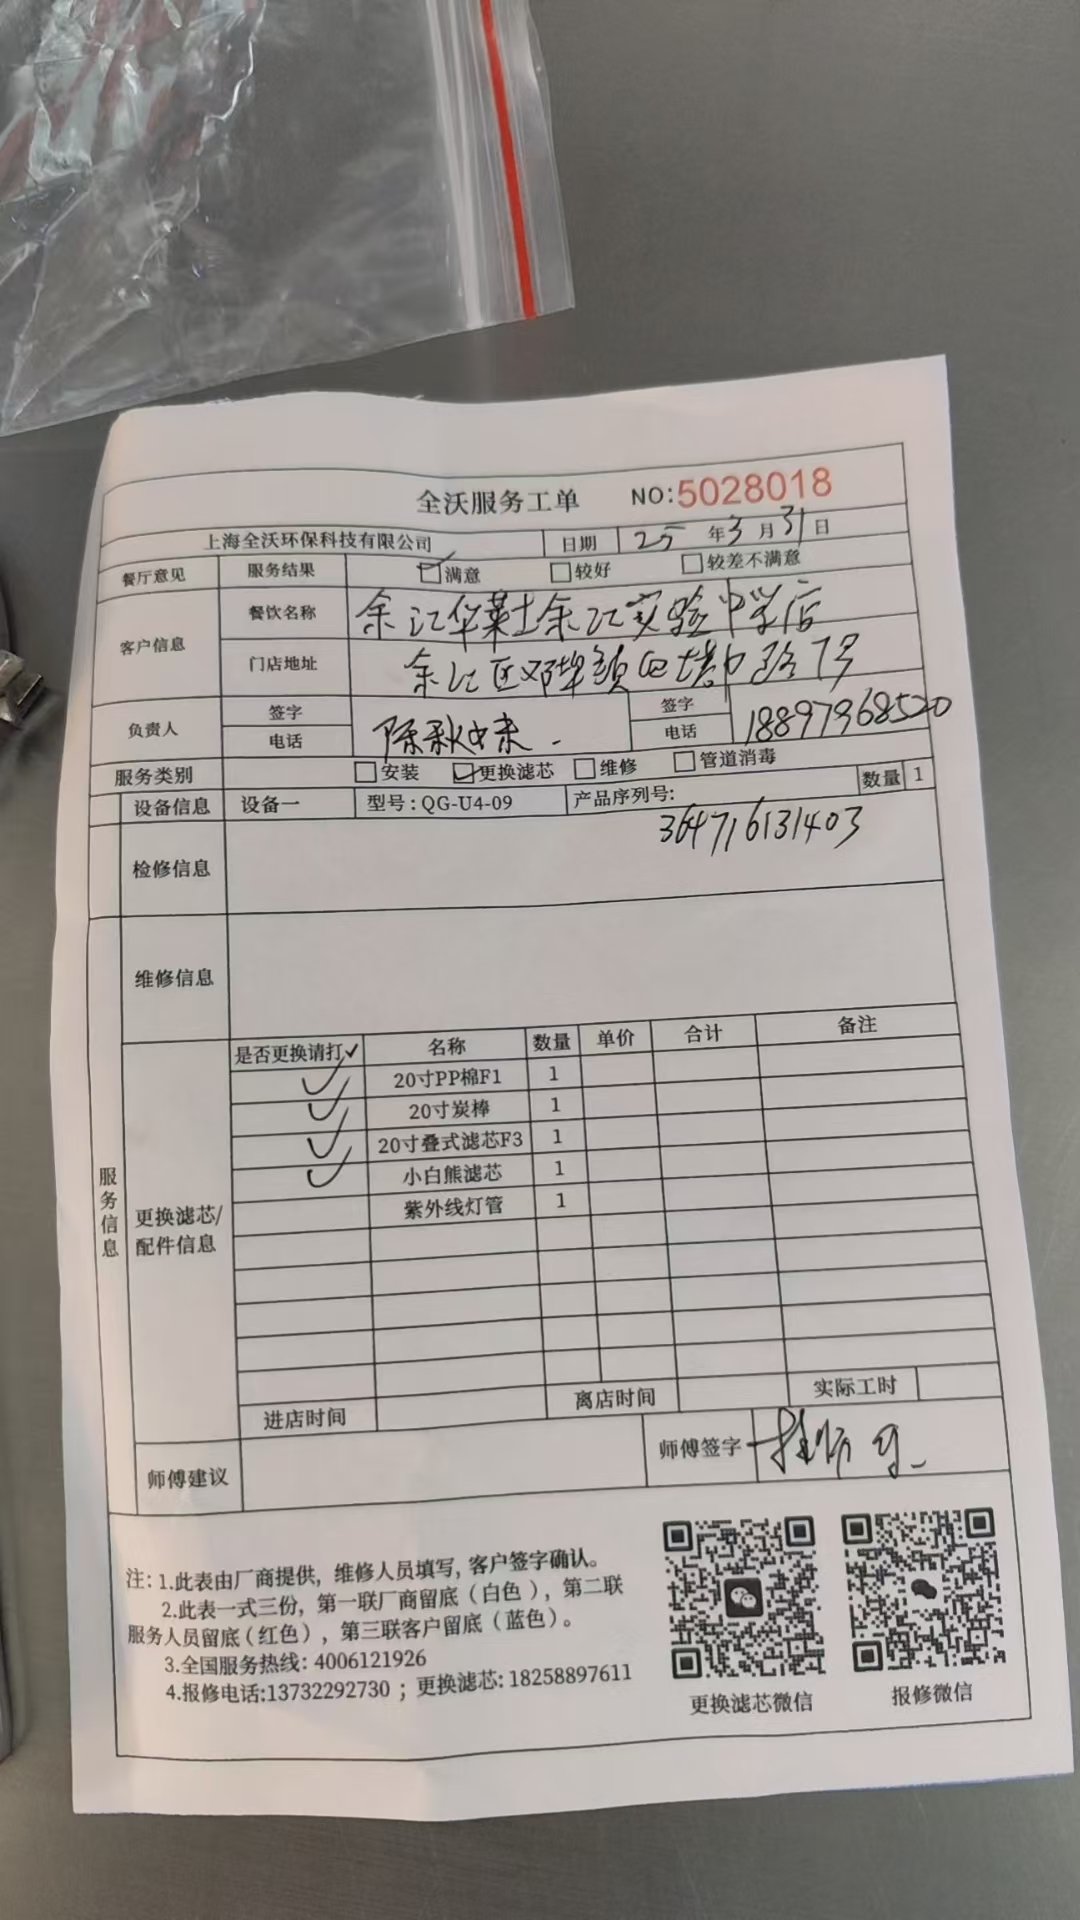 全沃服务工单 NO:5028018
上海全沃环保科技有限公司 日期 25年3月31日
餐厅意见 服务结果 满意 较好 较差不满意
客户信息 餐饮名称 余江华莱士余江实验中学店
门店地址 余江区邓埠镇白塔中路7号
负责人 签字 电话 签字 电话 18897968520
服务类别 安装 更换滤芯 维修 管道消毒
设备信息 设备一 型号:QG-U4-09 产品序列号: 数量 1
364716131403
检修信息
维修信息
服务信息
更换滤芯/
配件信息
是否更换请打✓ 名称 数量 单价 合计 备注
✓ 20寸PP棉F1 1
✓ 20寸炭棒 1
✓ 20寸叠式滤芯F3 1
✓ 小白熊滤芯 1
紫外线灯管 1
进店时间 离店时间 实际工时
师傅建议 师傅签字
注: 1.此表由厂商提供，维修人员填写, 客户签字确认。
2.此表一式三份，第一联厂商留底（白色），第二联
服务人员留底(红色)，第三联客户留底（蓝色）。
3.全国服务热线: 4006121926
4.报修电话:13732292730 ；更换滤芯: 18258897611
更换滤芯微信 报修微信